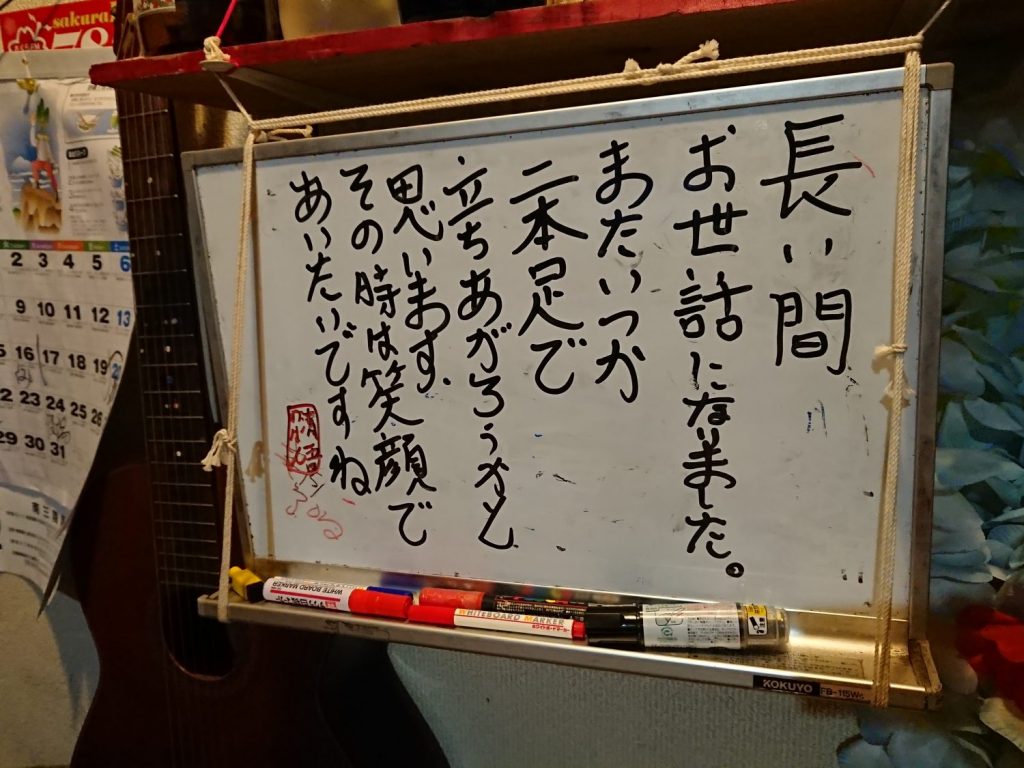 長い間
お世話になりました。
またいつか
二本足で
立ちあがろうかと
思います
その時は笑顔で
あいたいですね
sakura
2 3 4 5 6
9 10 11 12 13
16 17 18 19 20
22 23 24 25 26
29 30 31
WHITE BOARD MARKER
WHITEBOARD MARKER
KOKUYO
FB-115W